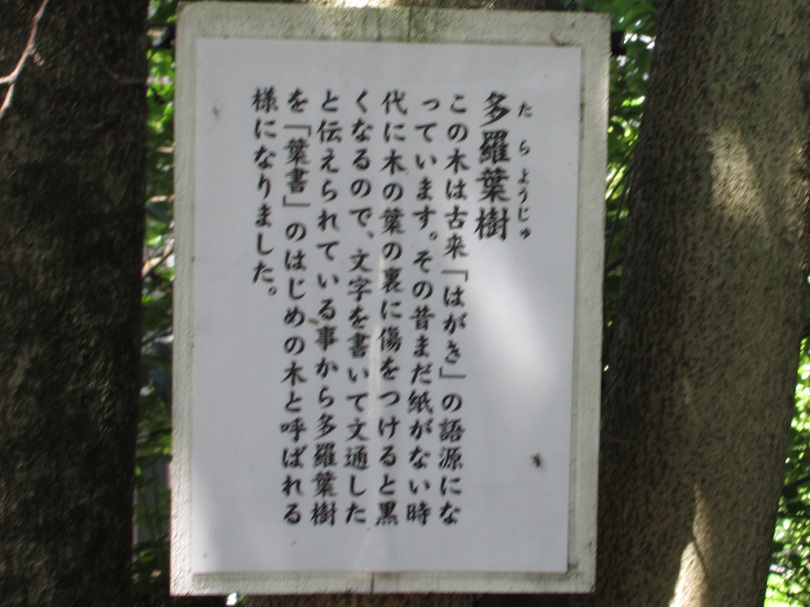 多羅葉樹
たらようじゅ
この木は古来「はがき」の語源にな
っています。その昔まだ紙がない時
代に木の葉の裏に傷をつけると黒
くなるので、文字を書いて文通した
と伝えられている事から多羅葉樹
を「葉書」のはじめの木と呼ばれる
様になりました。